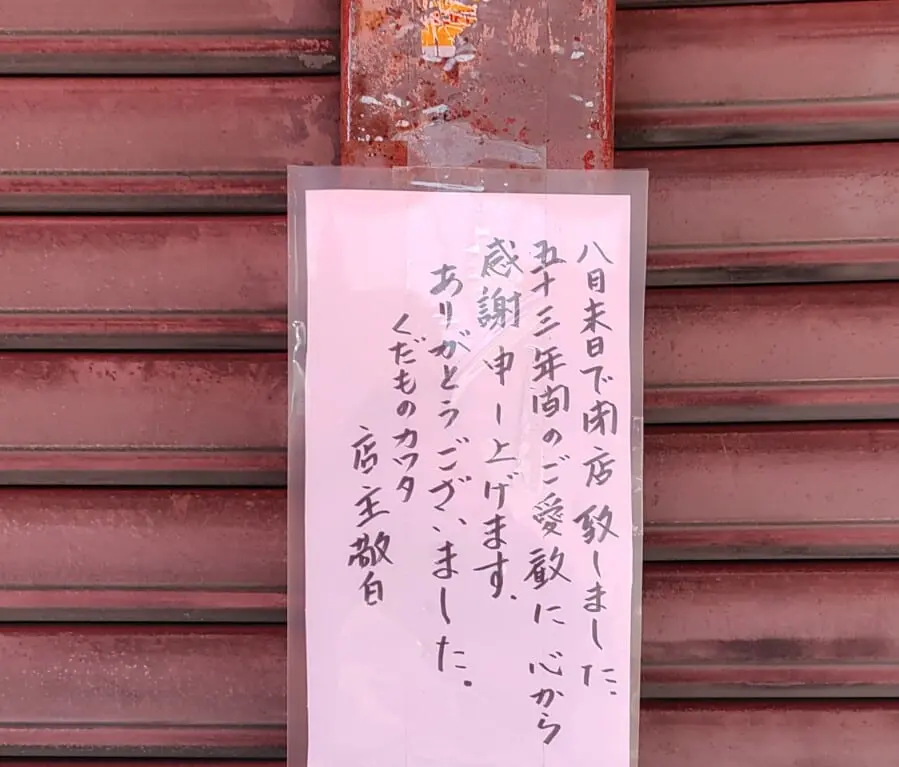 八月末日で閉店致しました。
五十三年間のご愛顧に心から
感謝申し上げます。
ありがとうございました。
くだものカワタ
店主敬白